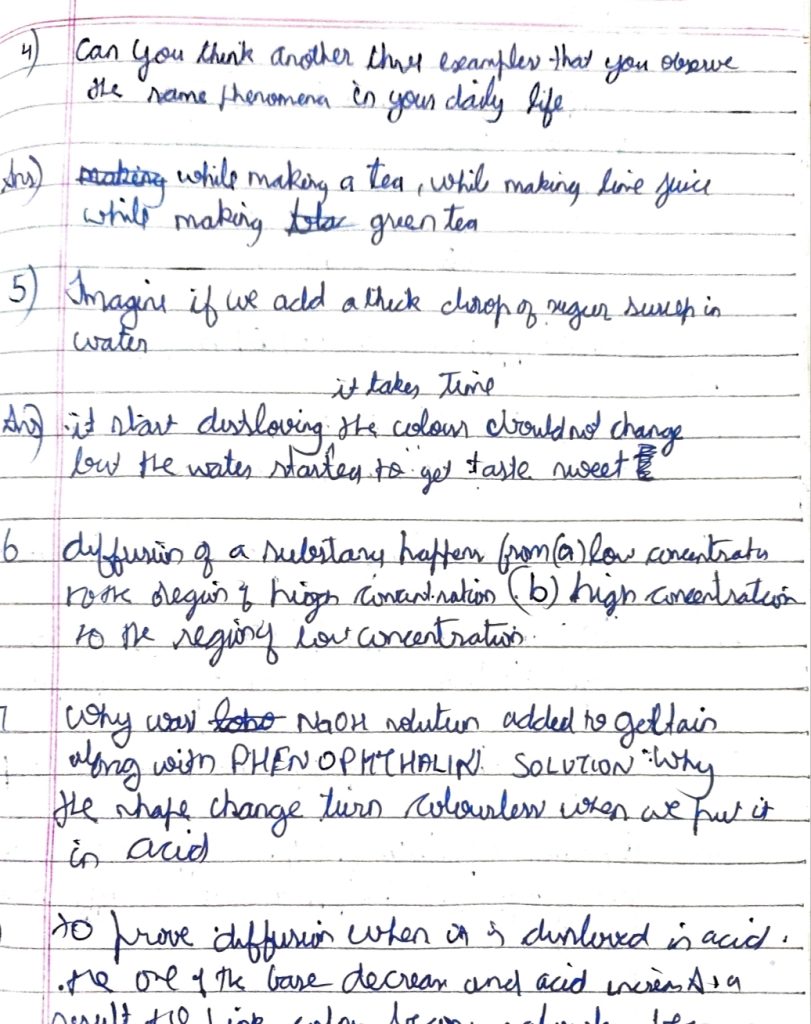 4) Can you think another three examples that you observe
the same phenomena in your daily life
Ans) making while making a tea, while making lime juice
while making green tea
5) Imagine if we add a thick drop of sugar surep in
water
it takes Time
Ans) it start dissloving the colour should not change
but the water started to get taste sweet
6 diffusion of a substany happen from (a) low concentratn
to the region of high concentration (b) high concentration
to the region of low concentration.
7 Why was NaOH solution added to geltain
along with PHENOPHTHALIN SOLUTION Why
the shape change turn colourless when we put it
in acid
to prove diffusion when it is dissloved in acid.
the one of the base decrease and acid increas As a
result to